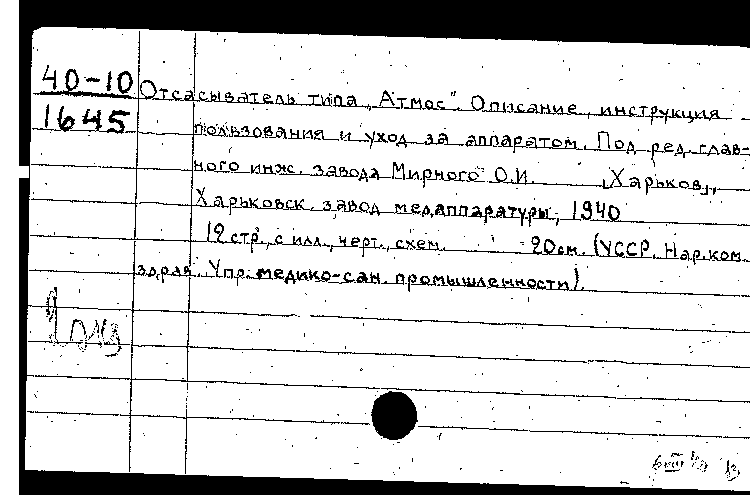 40-10
1645
Отсасыватель типа „Атмос". Описание, инструкция
пользования и уход за аппаратом. Под ред. глав-
ного инж. завода Мирного О.И. [Харьков],
Харьковск. завод медаппаратуры, 1940
12 стр., с илл., черт., схем. 20 см. (УССР. Нар.ком.
здрав. Упр. медико-сан. промышленности).